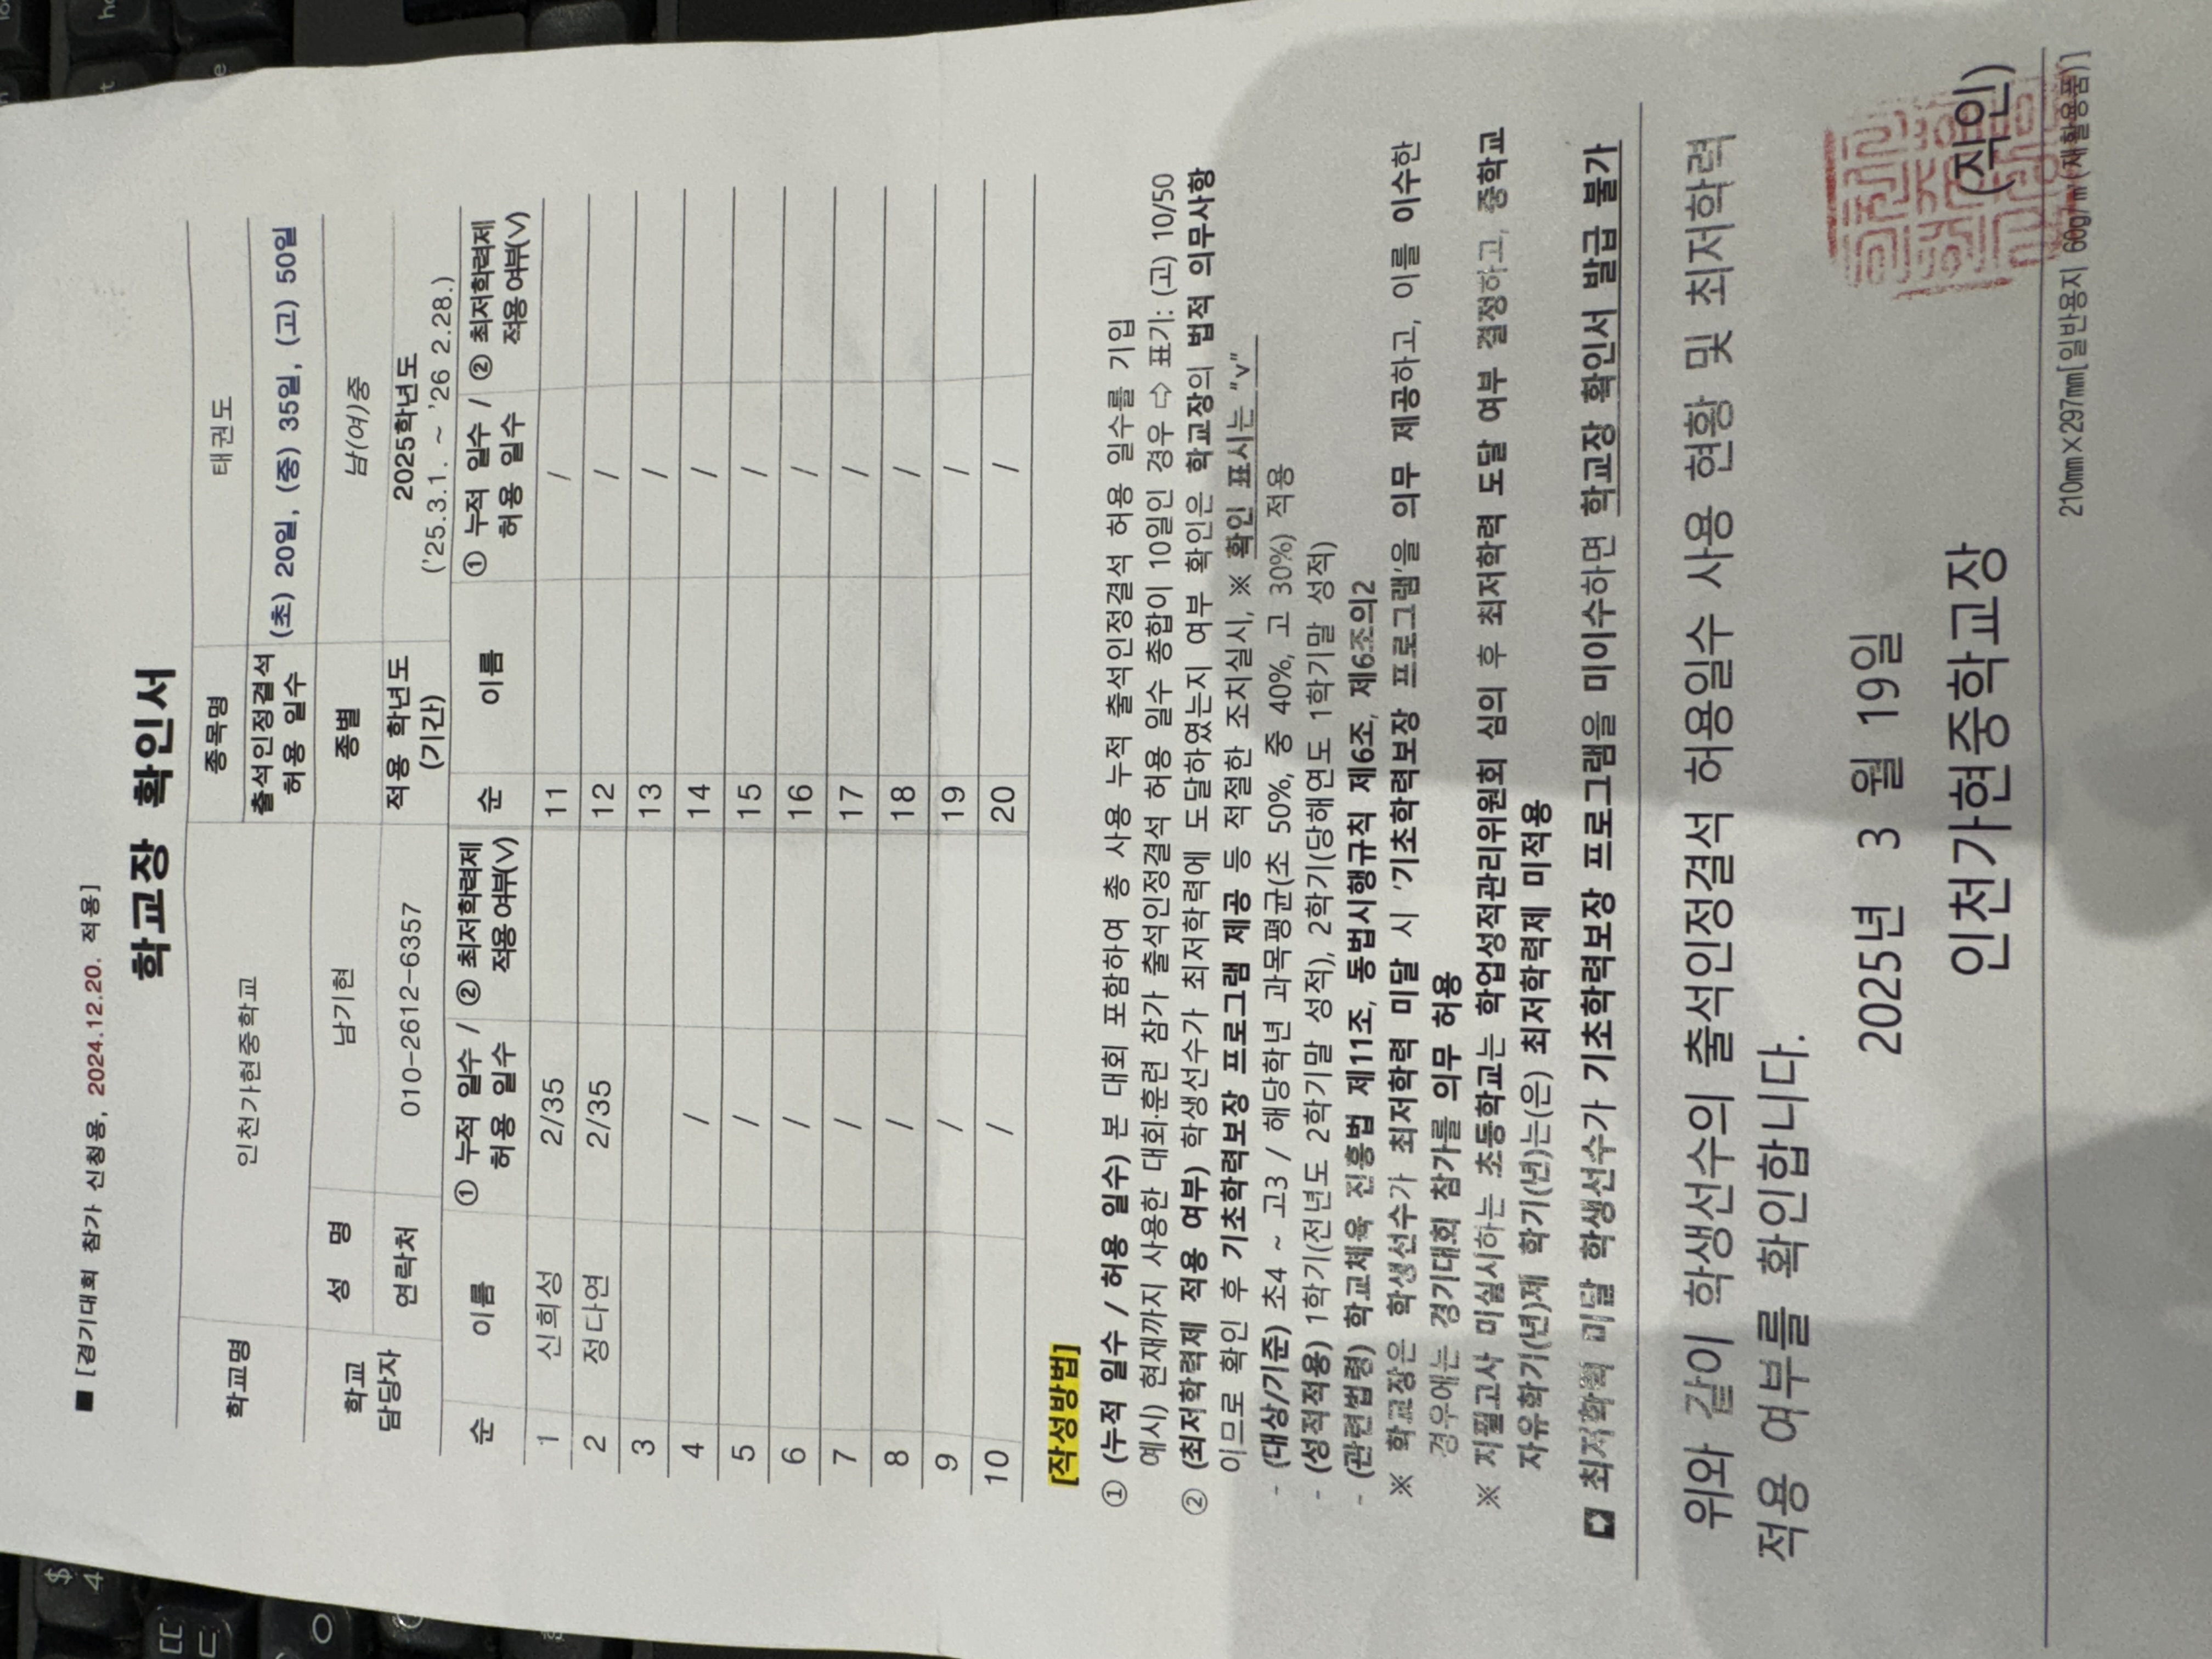 ■ [경기대회 참가 신청용, 2024.12.20. 적용]
학교장 확인서
학교명 인천가현중학교 종목명 태권도
출석인정결석 허용 일수 (초) 20일, (중) 35일, (고) 50일
학교 담당자 성 명 남기현 종별 남(여)중
연락처 010-2612-6357 적용 학년도 (기간) 2025학년도 ('25.3.1. ~ '26 2.28.)
순 이름 ① 누적 일수 / 허용 일수 ② 최저학력제 적용 여부(V) 순 이름 ① 누적 일수 / 허용 일수 ② 최저학력제 적용 여부(V)
1 신희성 2/35 11 /
2 정다연 2/35 12 /
3 13 /
4 / 14 /
5 / 15 /
6 / 16 /
7 / 17 /
8 / 18 /
9 / 19 /
10 / 20 /
[작성방법]
① (누적 일수 / 허용 일수) 본 대회 포함하여 총 사용 누적 출석인정결석 허용 일수를 기입
예시) 현재까지 사용한 대회·훈련 참가 출석인정결석 허용 일수 총합이 10일인 경우 ⇨ 표기: (고) 10/50
② (최저학력제 적용 여부) 학생선수가 최저학력에 도달하였는지 여부 확인은 학교장의 법적 의무사항
이므로 확인 후 기초학력보장 프로그램 제공 등 적절한 조치실시, ※ 확인 표시는 "v"
- (대상/기준) 초4 ~ 고3 / 해당학년 과목평균(초 50%, 중 40%, 고 30%) 적용
- (성적적용) 1학기(전년도 2학기말 성적), 2학기(당해연도 1학기말 성적)
- (관련법령) 학교체육 진흥법 제11조, 동법시행규칙 제6조, 제6조의2
※ 학교장은 학생선수가 최저학력 미달 시 '기초학력보장 프로그램'을 의무 제공하고, 이를 이수한
경우에는 경기대회 참가를 의무 허용
※ 지필고사 미실시하는 초등학교는 학업성적관리위원회 심의 후 최저학력 도달 여부 결정하고, 중학교
자유학기(년)제 학기(년)는(은) 최저학력제 미적용
최저학력 미달 학생선수가 기초학력보장 프로그램을 미이수하면 학교장 확인서 발급 불가
위와 같이 학생선수의 출석인정결석 허용일수 사용 현황 및 최저학력
적용 여부를 확인합니다.
2025년 3 월 19일
인천가현중학교장 (직인)
210㎜×297㎜[일반용지 60g/㎡(재활용품)]